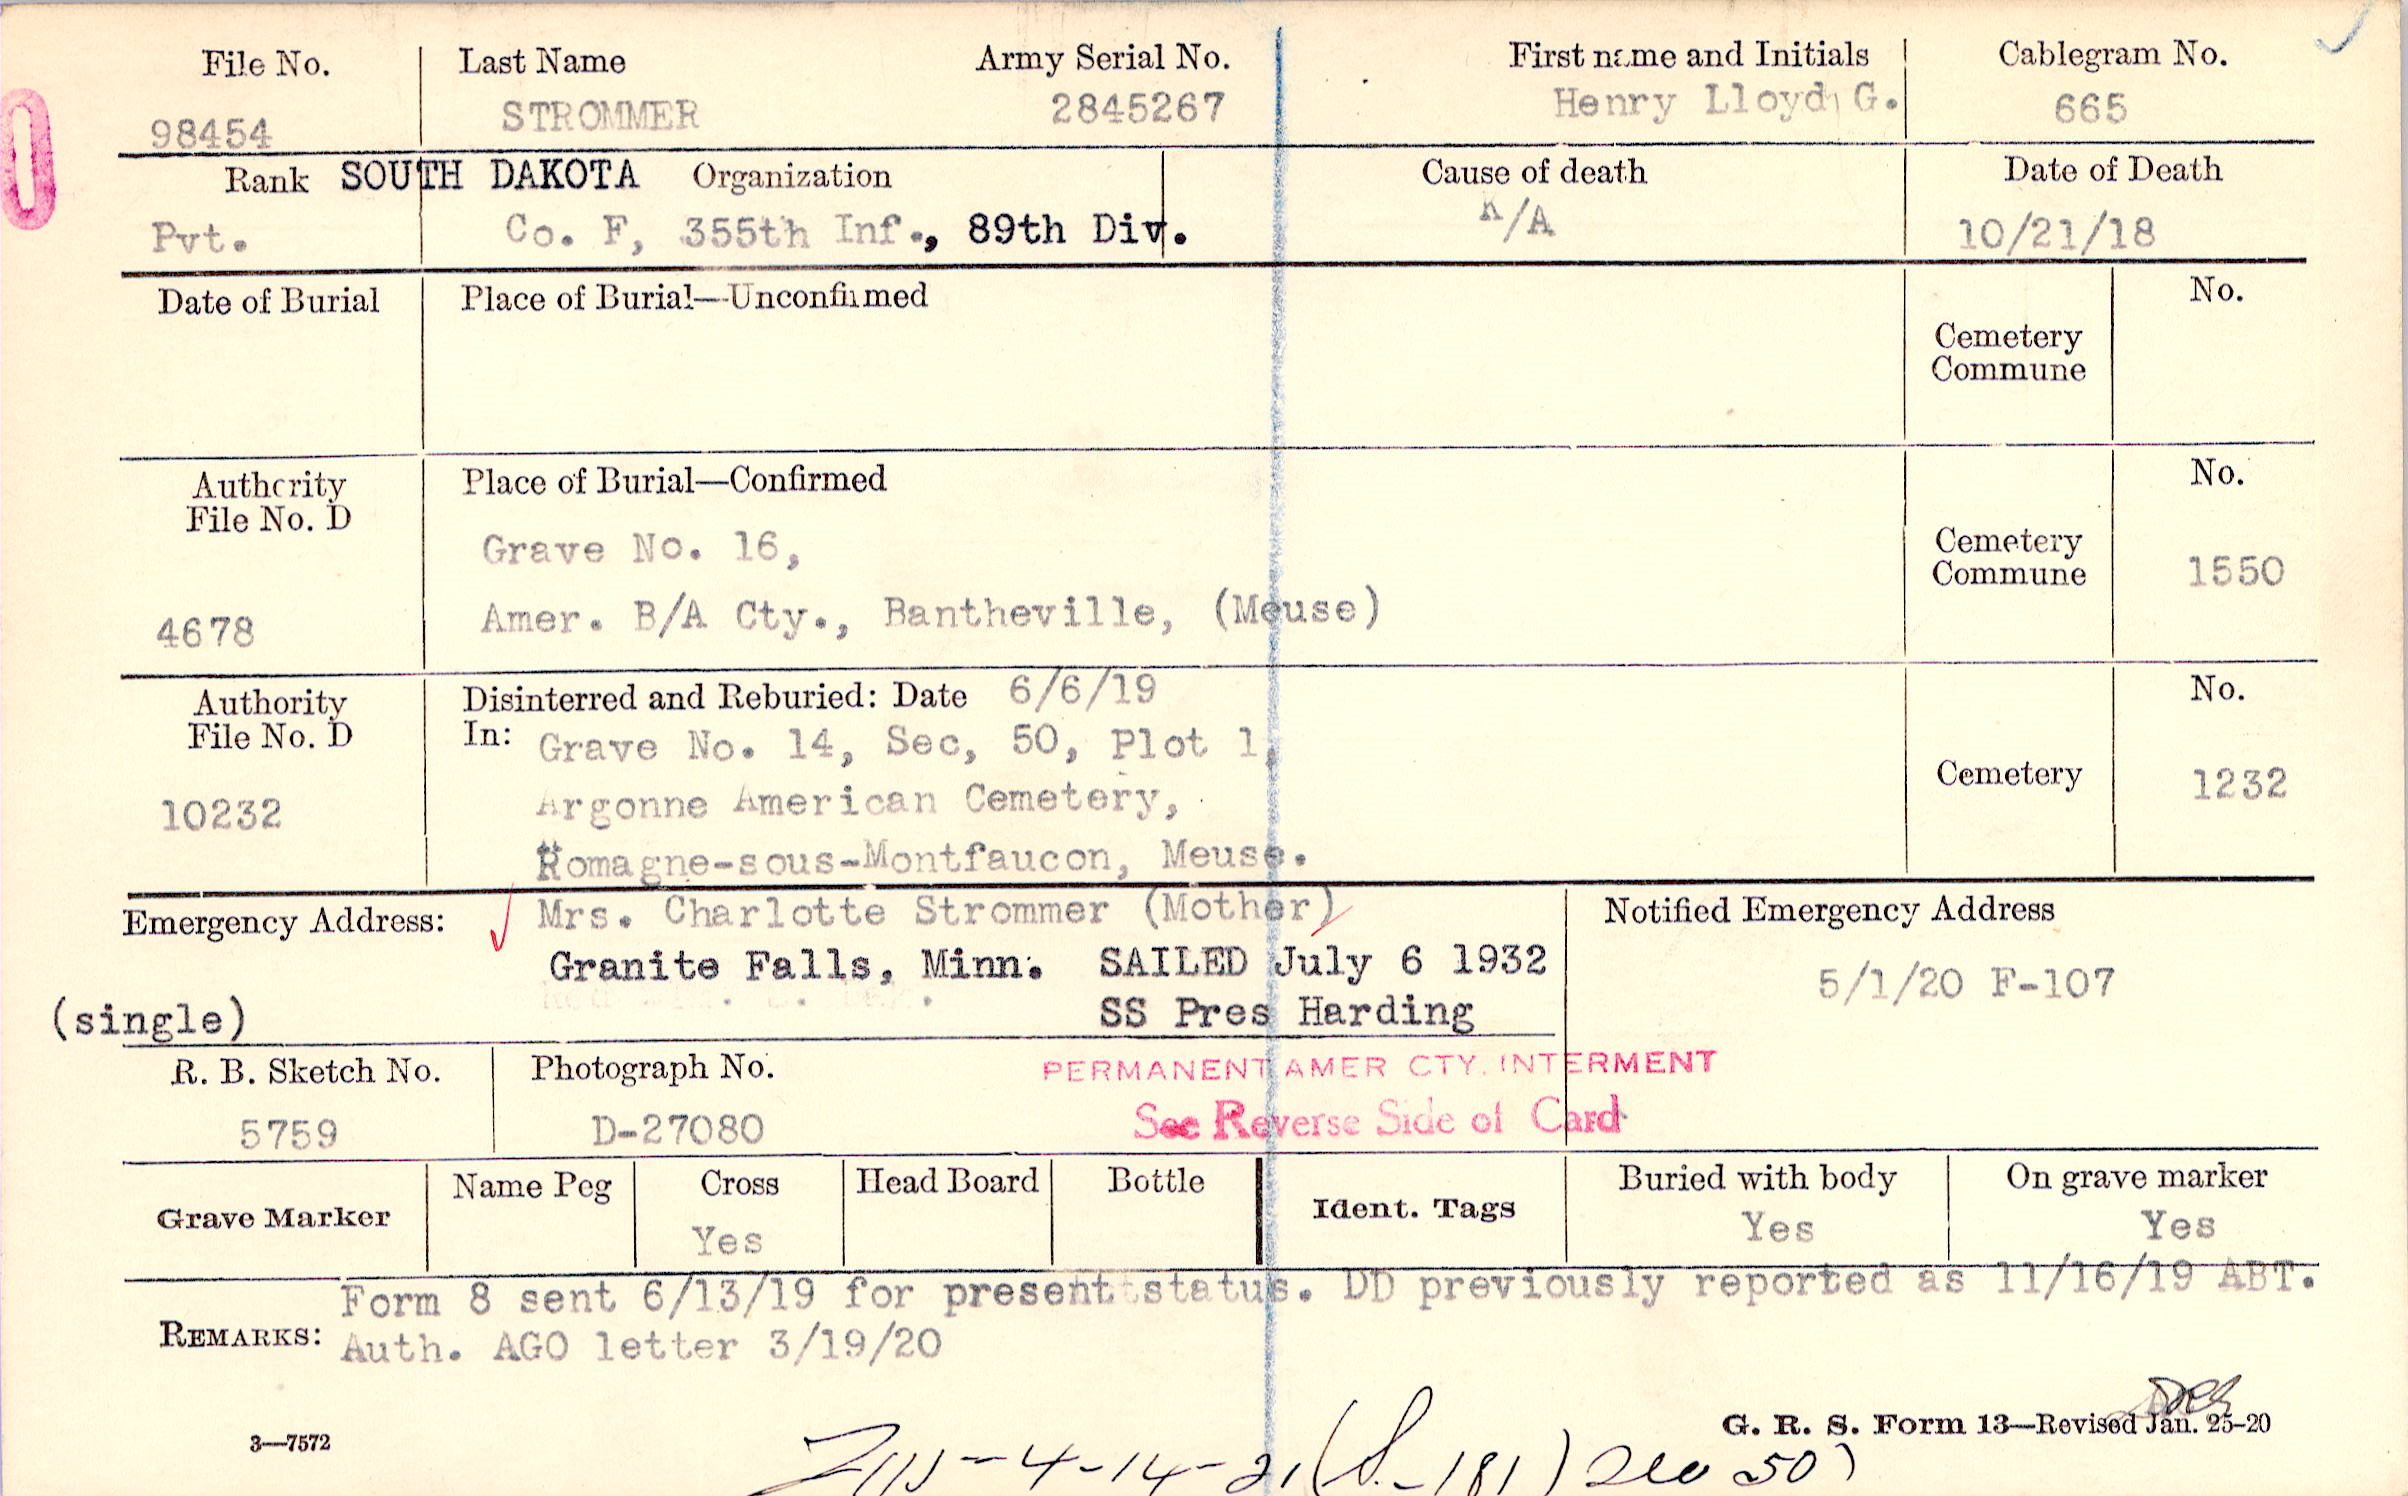 File No. Last Name Army Serial No. First name and Initials Cablegram No.
98454 STROMMER 2845267 Henry Lloyd G. 665
Rank SOUTH DAKOTA Organization Cause of death Date of Death
Pvt. Co. F, 355th Inf., 89th Div. K/A 10/21/18
Date of Burial Place of Burial—Unconfirmed No.
Cemetery
Commune
Authority Place of Burial—Confirmed No.
File No. D
Grave No. 16,
Cemetery
Commune 1550
4678 Amer. B/A Cty., Bantheville, (Meuse)
Authority Disinterred and Reburied: Date 6/6/19 No.
File No. D In: Grave No. 14, Sec, 50, Plot 1,
Cemetery 1232
10232 Argonne American Cemetery,
Romagne-sous-Montfaucon, Meuse.
Emergency Address: Mrs. Charlotte Strommer (Mother) Notified Emergency Address
Granite Falls, Minn. SAILED July 6 1932 5/1/20 F-107
(single) SS Pres Harding
R. B. Sketch No. Photograph No. PERMANENT AMER CTY. INTERMENT
5759 D-27080 See Reverse Side of Card
Grave Marker Name Peg Cross Head Board Bottle Ident. Tags Buried with body On grave marker
Yes Yes Yes
Form 8 sent 6/13/19 for present status. DD previously reported as 11/16/19 ABT.
REMARKS: Auth. AGO letter 3/19/20
G. R. S. Form 13—Revised Jan. 25-20
3—7572
4-14-21 (S-181) Sec 50)